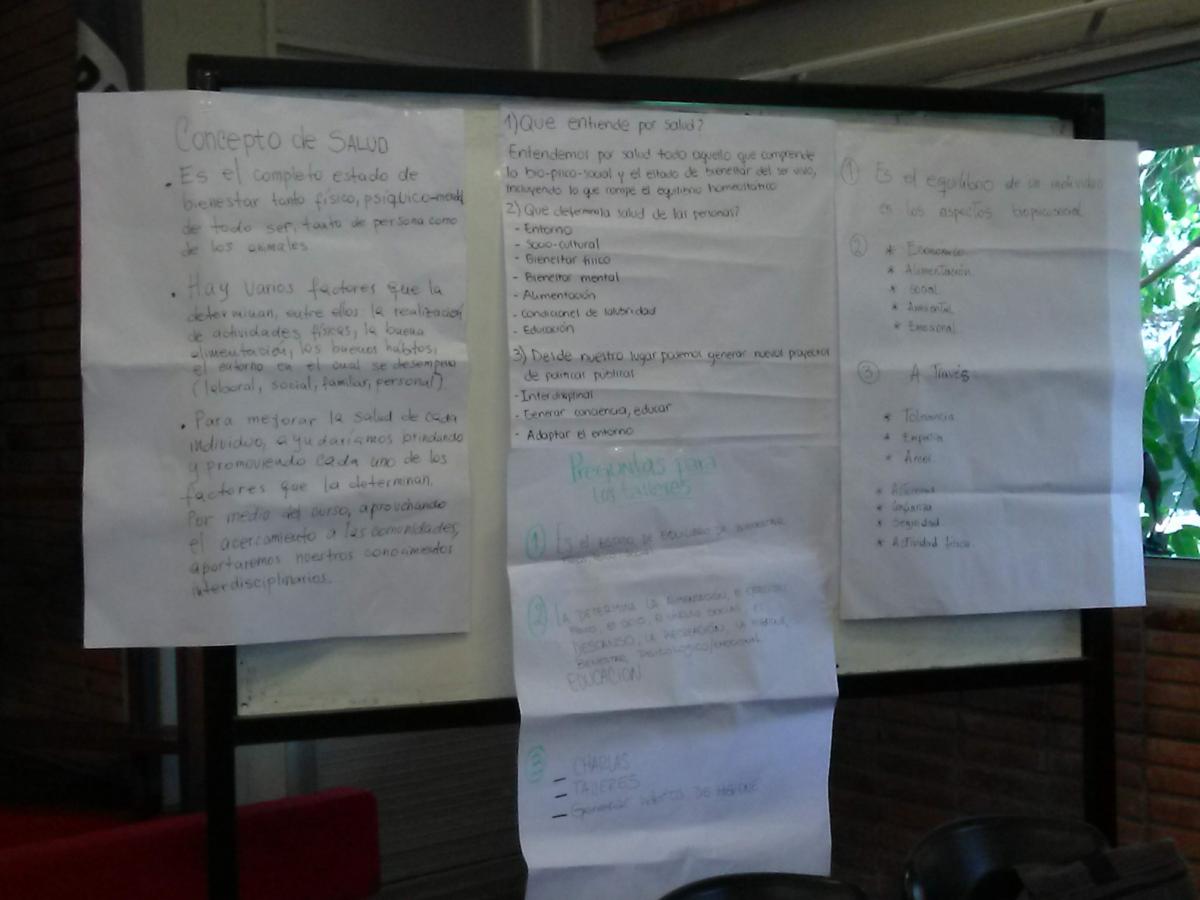 Concepto de SALUD
. Es el completo estado de
bienestar tanto físico, psíquico-mental
de todo ser, tanto de persona como
de los animales.
. Hay varios factores que la
determinan, entre ellos la realización
de actividades físicas, la buena
alimentación, los buenos hábitos,
el entorno en el cual se desempeña
(laboral, social, familiar, personal).
. Para mejorar la salud de cada
individuo, ayudaríamos brindando
y promoviendo cada uno de los
factores que la determinan.
Por medio del curso, aprovechando
el acercamiento a las comunidades,
aportaremos nuestros conocimientos
interdisciplinarios.
1) Que entiende por salud?
Entendemos por salud todo aquello que comprende
lo bio-psico-social y el estado de bienestar del ser vivo,
incluyendo lo que rompe el equilibrio homeostático
2) Que determina salud de las personas?
- Entorno
- Socio-cultural
- Bienestar físico
- Bienestar mental
- Alimentación
- Condiciones de salubridad
- Educación
3) Desde nuestro lugar podemos generar nuevos proyectos
de políticas públicas
- Interdisiplinal
- Generar conciencia, educar
- Adaptar el entorno
Preguntas para
los talleres
1 Es el estado de equilibrio de bienestar
2 LA DETERMINA LA ALIMENTACIÓN, EL
EL OCIO, EL SOCIAL, EL
DESCANSO, LA RECREACIÓN, LA HIGIENE,
BIENESTAR PSICOLOGICO/EMOCIONAL
EDUCACION
3 - CHARLAS
- TALLERES
- Generar habitos DE HIGIENE
1 Es el equilibrio de un individuo
en los aspectos biopsicosocial
2 * Economico
* Alimentación
* Social
* Ambiental
* Emosional
3 A Través
* Tolerancia
* Empatía
* Amor
* Confianza
* Seguridad
* Actividad física